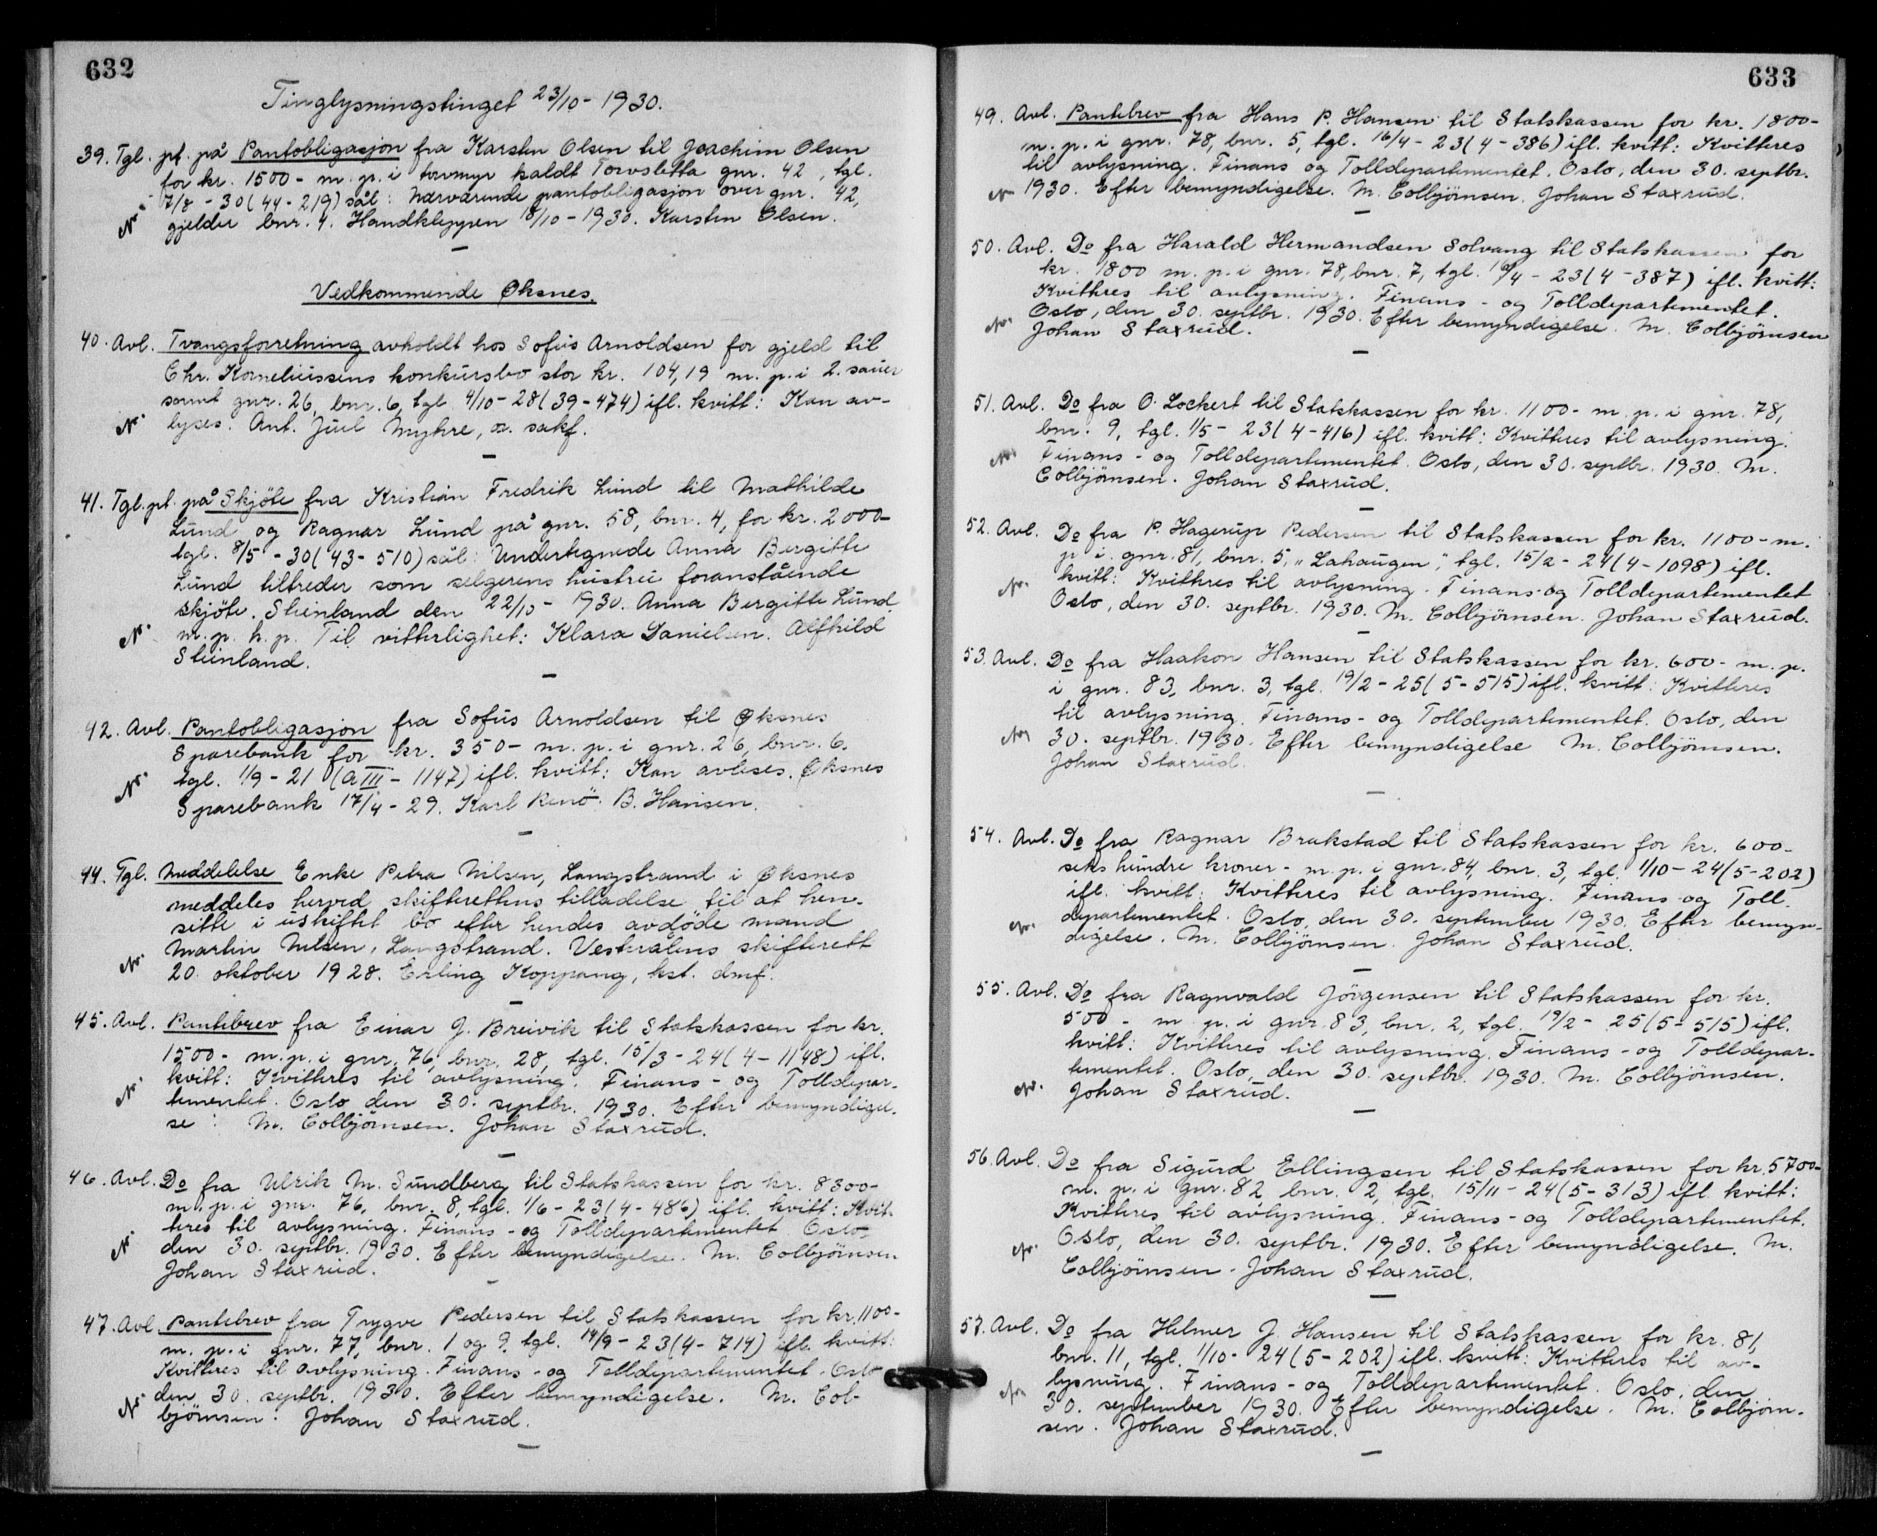 632
Tinglysningstinget 23/10 - 1930.
39. Tgl. pt. på Pantobligasjon fra Karsten Olsen til Joachim Olsen
for kr. 1500 - m. p. i torvmyr kaldt Torvsletta gnr. 42, tgl.
7/8 - 30 (44 - 219) sål: Nærværende pantobligasjon over gnr. 42,
gjelder bnr. 4. Handkleppen 18/10 - 1930. Karsten Olsen.
Vedkommende Øksnes.
40. Avl. Tvangsforretning avholdt hos Sofus Arnoldsen for gjeld til
Chr. Korneliussens konkursbo stor kr. 104,19 m. p. i 2. sauer
samt gnr. 26, bnr. 6, tgl. 4/10 - 28 (39 - 474) ifl. kvitt: Kan av-
lyses. Ant. Juel Myhre, o. sakf.
41. Tgl. pt. på Skjöte fra Kristian Fredrik Lund til Mathilde
Lund og Ragnar Lund på gnr. 58, bnr. 4, for kr. 2000-
tgl. 8/5 - 30 (43 - 510) sål: Undertegnede Anna Bergitte
Lund tiltreder som selgerens hustru foranstående
skjöte. Steinland den 22/10 - 1930. Anna Bergitte Lund
m. p. h. p. Til vitterlighet: Klara Danielsen. Alfhild
Steinland.
42. Avl. Pantobligasjon fra Sofus Arnoldsen til Øksnes
Sparebank for kr. 350 - m. p. i gnr. 26, bnr. 6.
tgl. 1/9 - 21 (a III - 1147) ifl. kvitt: Kan avleses. Øksnes
Sparebank 17/4 - 29. Karl Renö. B. Hansen.
44. Tgl. Meddelelse Enke Petra Nilsen, Langstrand i Øksnes
meddeles herved skifterettens tilladelse til at hen-
sitte i uskiftet bo efter hendes avdöde mand
Martin Nilsen, Langstrand. Vesteralens skifterett
20. oktober 1928. Erling Koppang, kst. dmf.
45. Avl. Pantebrev fra Einar J. Breivik til Statskassen for kr.
1500 - m. p. i gnr. 76, bnr. 28, tgl. 15/3 - 24 (4 - 1148) ifl.
kvitt: Kvitteres til avlysning. Finans - og Tolldepar-
tementet. Oslo den 30. septbr. 1930. Efter bemyndigel-
se: M. Colbjörnsen. Johan Staxrud.
46. Avl. Do fra Ulrik M. Sundberg til Statskassen for kr. 8300-
m. p. i gnr. 76, bnr. 8, tgl. 1/6 - 23 (4 - 486) ifl. kvitt: Kvit-
teres til avlysning. Finans - og Tolldepartementet Oslo,
den 30. septbr. 1930. Efter bemyndigelse. M. Colbjönsen
Johan Staxrud.
47. Avl. Pantebrev fra Trygve Pedersen til Statskassen for kr. 1100-
m. p. i gnr. 77, bnr. 1 og 9, tgl. 14/9 - 23 (4 - 714) ifl. kvitt:
Kvitteres til avlysning. Finans - og Tolldepartementet. Oslo
den 30. septbr. 1930. Efter bemyndigelse. M. Col-
björnsen. Johan Staxrud.
633
49. Avl. Pantebrev fra Hans P. Hansen til Statskassen for kr. 1800-
m. p. i gnr. 78, bnr. 5, tgl. 16/4 - 23 (4 - 386) ifl. kvitt: Kvitteres
til avlysning. Finans og Tolldepartementet. Oslo, den 30. septbr.
1930. Efter bemyndigelse. M. Colbjörnsen. Johan Staxrud.
50. Avl. Do fra Harald Hermandsen Solvang til Statskassen for
kr. 1800 m. p. i gnr. 78, bnr. 7, tgl. 16/4 - 23 (4 - 387) ifl. kvitt:
Kvitteres til avlysning. Finans - og Tolldepartementet.
Oslo, den 30. septbr. 1930. Efter bemyndigelse. M. Colbjörnsen
Johan Staxrud.
51. Avl. Do fra O. Lockert til Statskassen for kr. 1100 - m. p. i gnr. 78,
bnr. 9, tgl. 1/5 - 23 (4 - 416) ifl. kvitt: Kvitteres til avlysning.
Finans - og Tolldepartementet. Oslo, den 30. septbr. 1930. M.
Colbjönsen. Johan Staxrud.
52. Avl. Do fra P. Hagerup Pedersen til Statskassen for kr. 1100 - m.
p. i. gnr. 81, bnr. 5, „Lahaugen", tgl. 15/2 - 24 (4 - 1098) ifl.
kvitt: Kvitteres til avlysning. Finans - og Tolldepartementet
Oslo, den 30. septbr. 1930. M. Colbjörnsen. Johan Staxrud.
53. Avl. Do fra Haakon Hansen til Statskassen for kr. 600 - m. p.
i gnr. 83, bnr. 3, tgl. 19/2 - 25 (5 - 515) ifl. kvitt: Kvitteres
til avlysning. Finans - og Tolldepartementet. Oslo, den
30. septbr. 1930. Efter bemyndigelse M. Colbjörnsen.
Johan Staxrud.
54. Avl. Do fra Ragnar Brakstad til Statskassen for kr. 600-
seks hundre kroner - m. p. i gnr. 84, bnr. 3, tgl. 1/10 - 24 (5 - 202)
ifl. kvitt: Kvitteres til avlysning. Finans og Toll.
departementet. Oslo, den 30. september 1930. Efter bemyn-
digelse. M. Colbjörnsen. Johan Staxrud.
55. Avl. Do fra Ragnvald Jörgensen til Statskassen for kr.
500 - m. p. i gnr. 83, bnr. 2, tgl. 19/2 - 25 (5 - 515) ifl.
kvitt: Kvitteres til avlysning. Finans - og Tolldepar-
tementet. Oslo, den 30. septbr. 1930. M. Colbjörnsen.
Johan Staxrud.
56. Avl. Do fra Sigurd Ellingsen til Statskassen for kr. 5700-
m. p. i gnr. 82 bnr. 2, tgl. 15/11 - 24 (5 - 313) ifl. kvitt:
Kvitteres til avlysning. Finans - og Tolldepartementet.
Oslo, den 30. septbr. 1930. Efter bemyndigelse. M.
Colbjörnsen. Johan Staxrud.
57. Avl. Do fra Helmer J. Hansen til Statskassen for kr. 81,
bnr. 11, tgl. 1/10 - 24 (5 - 202) ifl. kvitt: Kvitteres til av-
lysning. Finans - og Tolldepartementet. Oslo, den
30. september 1930. Efter bemyndigelse. M. Colbjörn-
sen. Johan Staxrud.